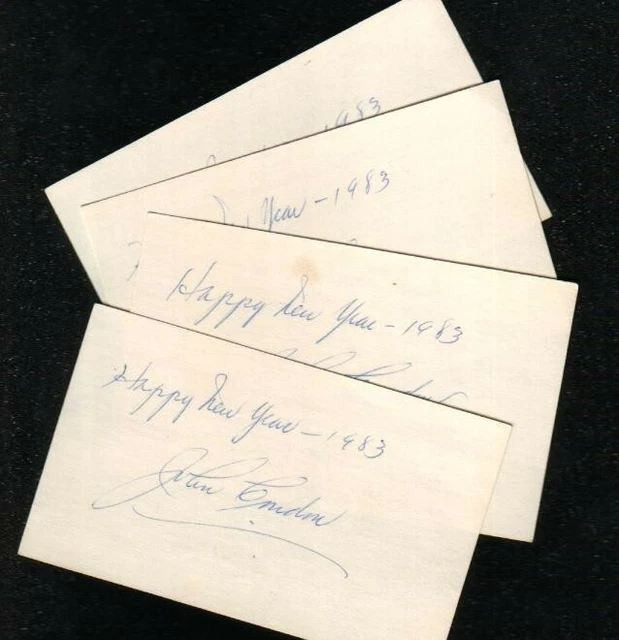 1983
Year - 1983
Happy New Year - 1983
Happy New Year - 1983
John Condon